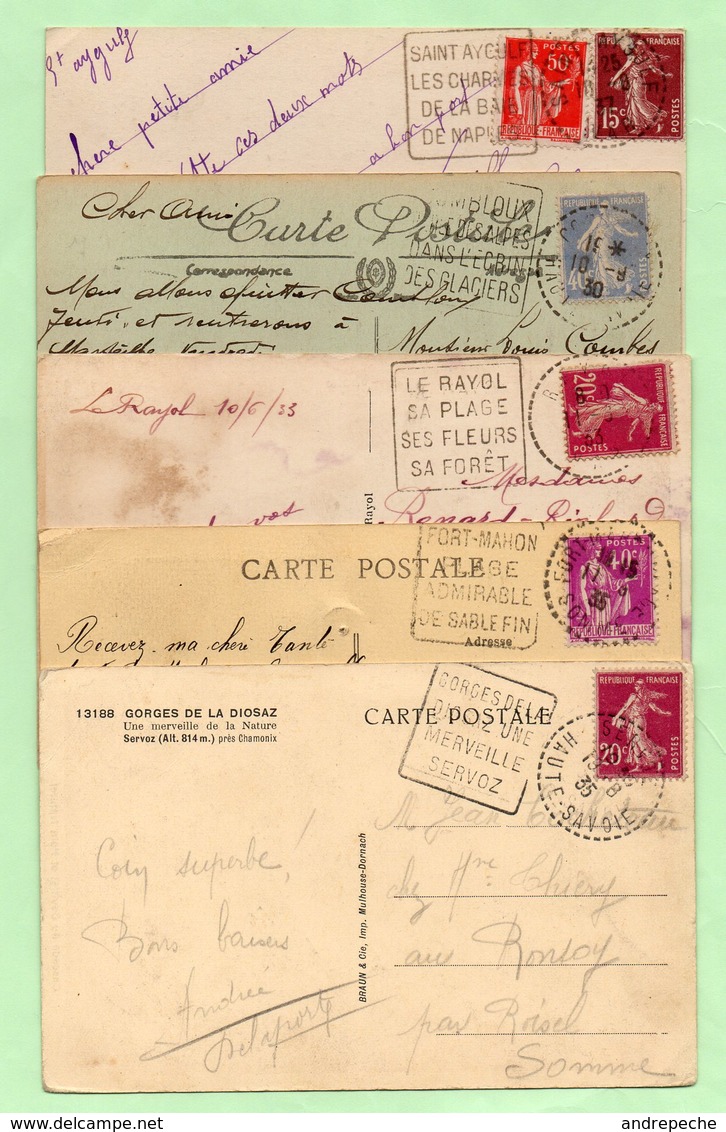 St Aygulf
Chère petite amie
ces deux mots
SAINT AYGULF
LES CHARMES
DE LA BAIE
DE NAPLES
POSTES
50c
REPUBLIQUE FRANÇAISE
REPUBLIQUE FRANÇAISE
15c
POSTES
Cher Ami
Carte Postale
Correspondance
COMBLOUX
DES ALPES
DANS L'ECRIN
DES GLACIERS
REPUBLIQUE FRANÇAISE
40c
POSTES
10
30
Nous allons quitter Combloux
Jeudi et rentrerons à
Marseille Vendredi
Monsieur Louis Combes
Le Rayol 10/6/33
LE RAYOL
SA PLAGE
SES FLEURS
SA FORÊT
REPUBLIQUE FRANÇAISE
20c
POSTES
Mesdames
Renard
vos
Rayol
CARTE POSTALE
FORT-MAHON
PLAGE
ADMIRABLE
DE SABLE FIN
Adresse
POSTES
40c
REPUBLIQUE FRANÇAISE
Recevez ma chère Tante
13188 GORGES DE LA DIOSAZ
Une merveille de la Nature
Servoz (Alt. 814 m.) près Chamonix
CARTE POSTALE
GORGES DE LA
DIOSAZ UNE
MERVEILLE
SERVOZ
REPUBLIQUE FRANÇAISE
20c
POSTES
HAUTE-SAVOIE
35
Coin superbe!
Bons baisers
Andrée
Delaporte
BRAUN & Cie, Imp. Mulhouse-Dornach
M Jean
chez Mme Thiéry
aux Ronsoy
par Roisel
Somme
andrepeche